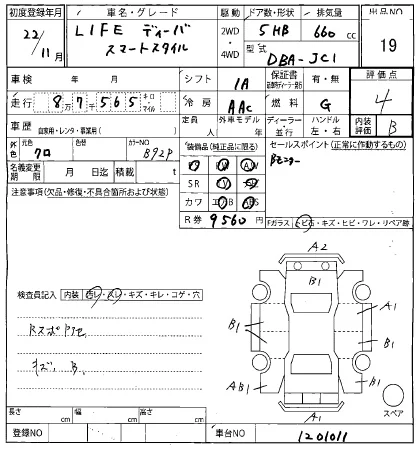 初度登録年月 車名・グレード 駆動 ドア数・形状 排気量 出品NO
22/11月 LIFE ディーバ スマートスタイル 2WD・4WD 5HB 660cc 19
型式 DBA-JC1
車検 年 月 シフト IA 保証書 有・無 評価点
走行 8万7千565 キロ・マイル 冷房 AAC 燃料 G 4
車歴 自家用・レンタ・事業用( ) 定員 人 外車モデル 年 ディーラー・並行 ハンドル 左・右 内装評価 B
外色 元色 クロ 色替 カラーNO B92P 装備品(純正品に限る) セールスポイント(正常に作動するもの)
名義変更期限 月 日迄 積載 t SR Bモニター
注意事項(欠品・修復・不具合箇所および状態) カワ
R券 9560円 Fガラス トビ石・キズ・ヒビ・ワレ・リペア跡
A2
B1
A1
検査員記入 内装 汚レ・スレ・キズ・キレ・コゲ・穴
B1 B1
Rスポアセ
B1
キズ、B.
AB1 A1
A1 スペア
長さ cm 幅 cm 高さ cm
登録NO 車台NO 1201011